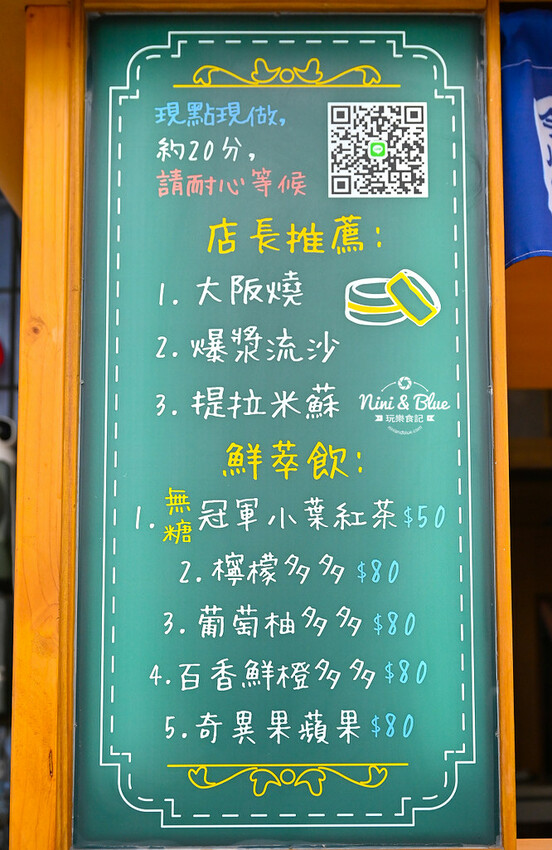 現點現做,
約20分,
請耐心等候
店長推薦:
1. 大阪燒
2. 爆漿流沙
3. 提拉米蘇
Nini & Blue
玩樂食記
niniandblue.com
鮮萃飲:
1. 無糖 冠軍小葉紅茶 $50
2. 檸檬多多 $80
3. 葡萄柚多多 $80
4. 百香鮮橙多多 $80
5. 奇異果蘋果 $80